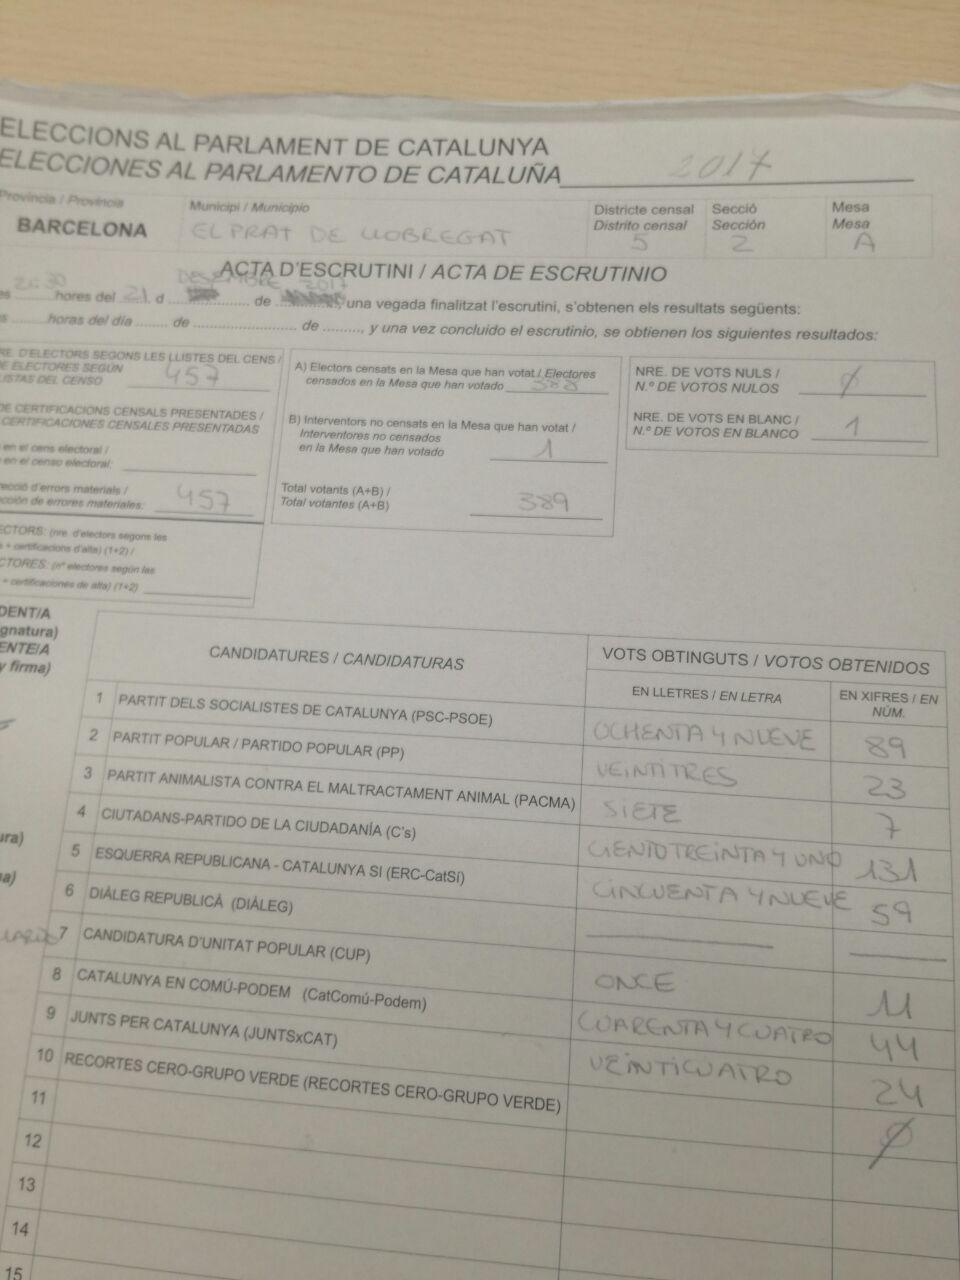 ELECCIONS AL PARLAMENT DE CATALUNYA
ELECCIONES AL PARLAMENTO DE CATALUÑA 2017
Provincia / Província
BARCELONA
Municipi / Municipio
EL PRAT DE LLOBREGAT
Districte censal
Distrito censal
5
Secció
Sección
2
Mesa
Mesa
A
ACTA D'ESCRUTINI / ACTA DE ESCRUTINIO
DESEMBRE 2017
hores del 21 d de , una vegada finalitzat l'escrutini, s'obtenen els resultats següents:
horas del día de de , y una vez concluido el escrutinio, se obtienen los siguientes resultados:
RE. D'ELECTORS SEGONS LES LLISTES DEL CENS /
DE ELECTORES SEGÚN
LISTAS DEL CENSO
457
DE CERTIFICACIONS CENSALS PRESENTADES /
CERTIFICACIONES CENSALES PRESENTADAS
en el cens electoral /
en el censo electoral:
recció d'errors materials /
cción de errores materiales: 457
ECTORS: (nre. d'electors segons les
+ certificacions d'alta) (1+2) /
CTORES: (nº electores según las
+ certificaciones de alta) (1+2)
A) Electors censats en la Mesa que han votat / Electores
censados en la Mesa que han votado 388
B) Interventors no censats en la Mesa que han votat /
Interventores no censados
en la Mesa que han votado 1
Total votants (A+B) /
Total votantes (A+B) 389
NRE. DE VOTS NULS /
N.º DE VOTOS NULOS Ø
NRE. DE VOTS EN BLANC /
N.º DE VOTOS EN BLANCO 1
DENT/A
gnatura)
ENTE/A
y firma)
ura)
na)
CANDIDATURES / CANDIDATURAS
VOTS OBTINGUTS / VOTOS OBTENIDOS
EN LLETRES / EN LETRA
EN XIFRES / EN
NÚM.
1 PARTIT DELS SOCIALISTES DE CATALUNYA (PSC-PSOE) OCHENTA Y NUEVE 89
2 PARTIT POPULAR / PARTIDO POPULAR (PP) VEINTITRES 23
3 PARTIT ANIMALISTA CONTRA EL MALTRACTAMENT ANIMAL (PACMA) SIETE 7
4 CIUTADANS-PARTIDO DE LA CIUDADANÍA (C's) CIENTO TREINTA Y UNO 131
5 ESQUERRA REPUBLICANA - CATALUNYA SI (ERC-CatSí) CINCUENTA Y NUEVE 59
6 DIÀLEG REPUBLICÀ (DIÀLEG)
7 CANDIDATURA D'UNITAT POPULAR (CUP) ONCE 11
8 CATALUNYA EN COMÚ-PODEM (CatComú-Podem) CUARENTA Y CUATRO 44
9 JUNTS PER CATALUNYA (JUNTSxCAT) VEINTICUATRO 24
10 RECORTES CERO-GRUPO VERDE (RECORTES CERO-GRUPO VERDE) Ø
11
12
13
14
15